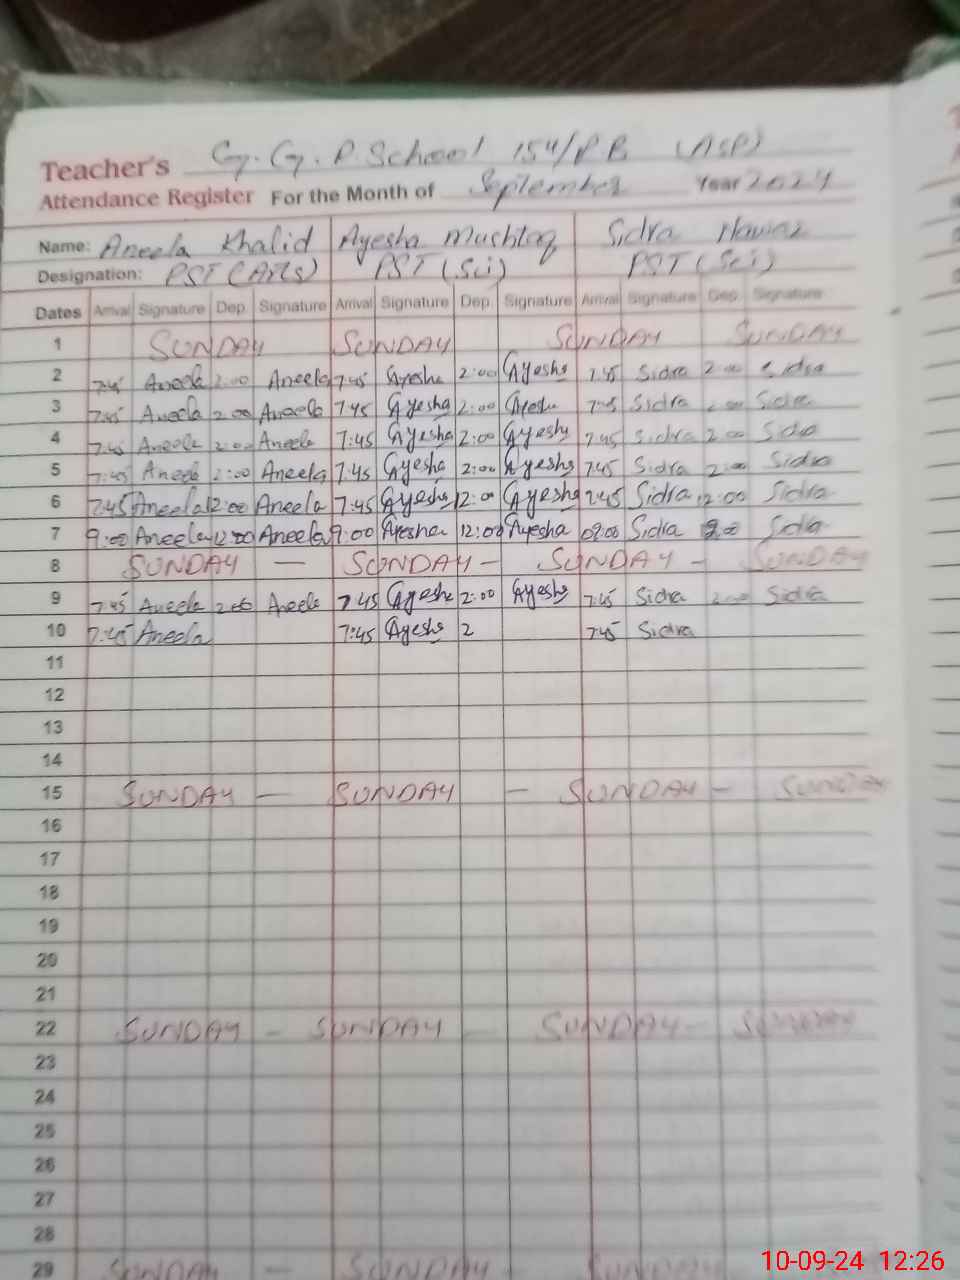 Teacher's G. G. P. School 154/P.B (NSP)
Attendance Register For the Month of September Year 2024
Name: Aneela Khalid Ayesha Mushtaq Sidra Nawaz
Designation: PST (Arts) PST (Sci) PST (Sci)
Dates Arrival Signature Dep. Signature Arrival Signature Dep. Signature Arrival Signature Dep. Signature
1 SUNDAY SUNDAY SUNDAY SUNDAY
2 7:45 Aneela 2:00 Aneela 7:45 Ayesha 2:00 Ayesha 7:45 Sidra 2:00 Sidra
3 7:45 Aneela 2:00 Aneela 7:45 Ayesha 2:00 Ayesha 7:45 Sidra 2:00 Sidra
4 7:45 Aneela 2:00 Aneela 7:45 Ayesha 2:00 Ayesha 7:45 Sidra 2:00 Sidra
5 7:45 Aneela 2:00 Aneela 7:45 Ayesha 2:00 Ayesha 7:45 Sidra 2:00 Sidra
6 7:45 Aneela 12:00 Aneela 7:45 Ayesha 12:00 Ayesha 7:45 Sidra 12:00 Sidra
7 9:00 Aneela 12:00 Aneela 9:00 Ayesha 12:00 Ayesha 09:00 Sidra Sidra
8 SUNDAY — SUNDAY - SUNDAY - SUNDAY
9 7:45 Aneela 2:00 Aneela 7:45 Ayesha 2:00 Ayesha 7:45 Sidra 2:00 Sidra
10 7:45 Aneela 7:45 Ayesha 2 7:45 Sidra
11
12
13
14
15 SUNDAY — SUNDAY - SUNDAY - SUNDAY
16
17
18
19
20
21
22 SUNDAY - SUNDAY - SUNDAY - SUNDAY
23
24
25
26
27
28
29 SUNDAY SUNDAY SUNDAY
10-09-24 12:26